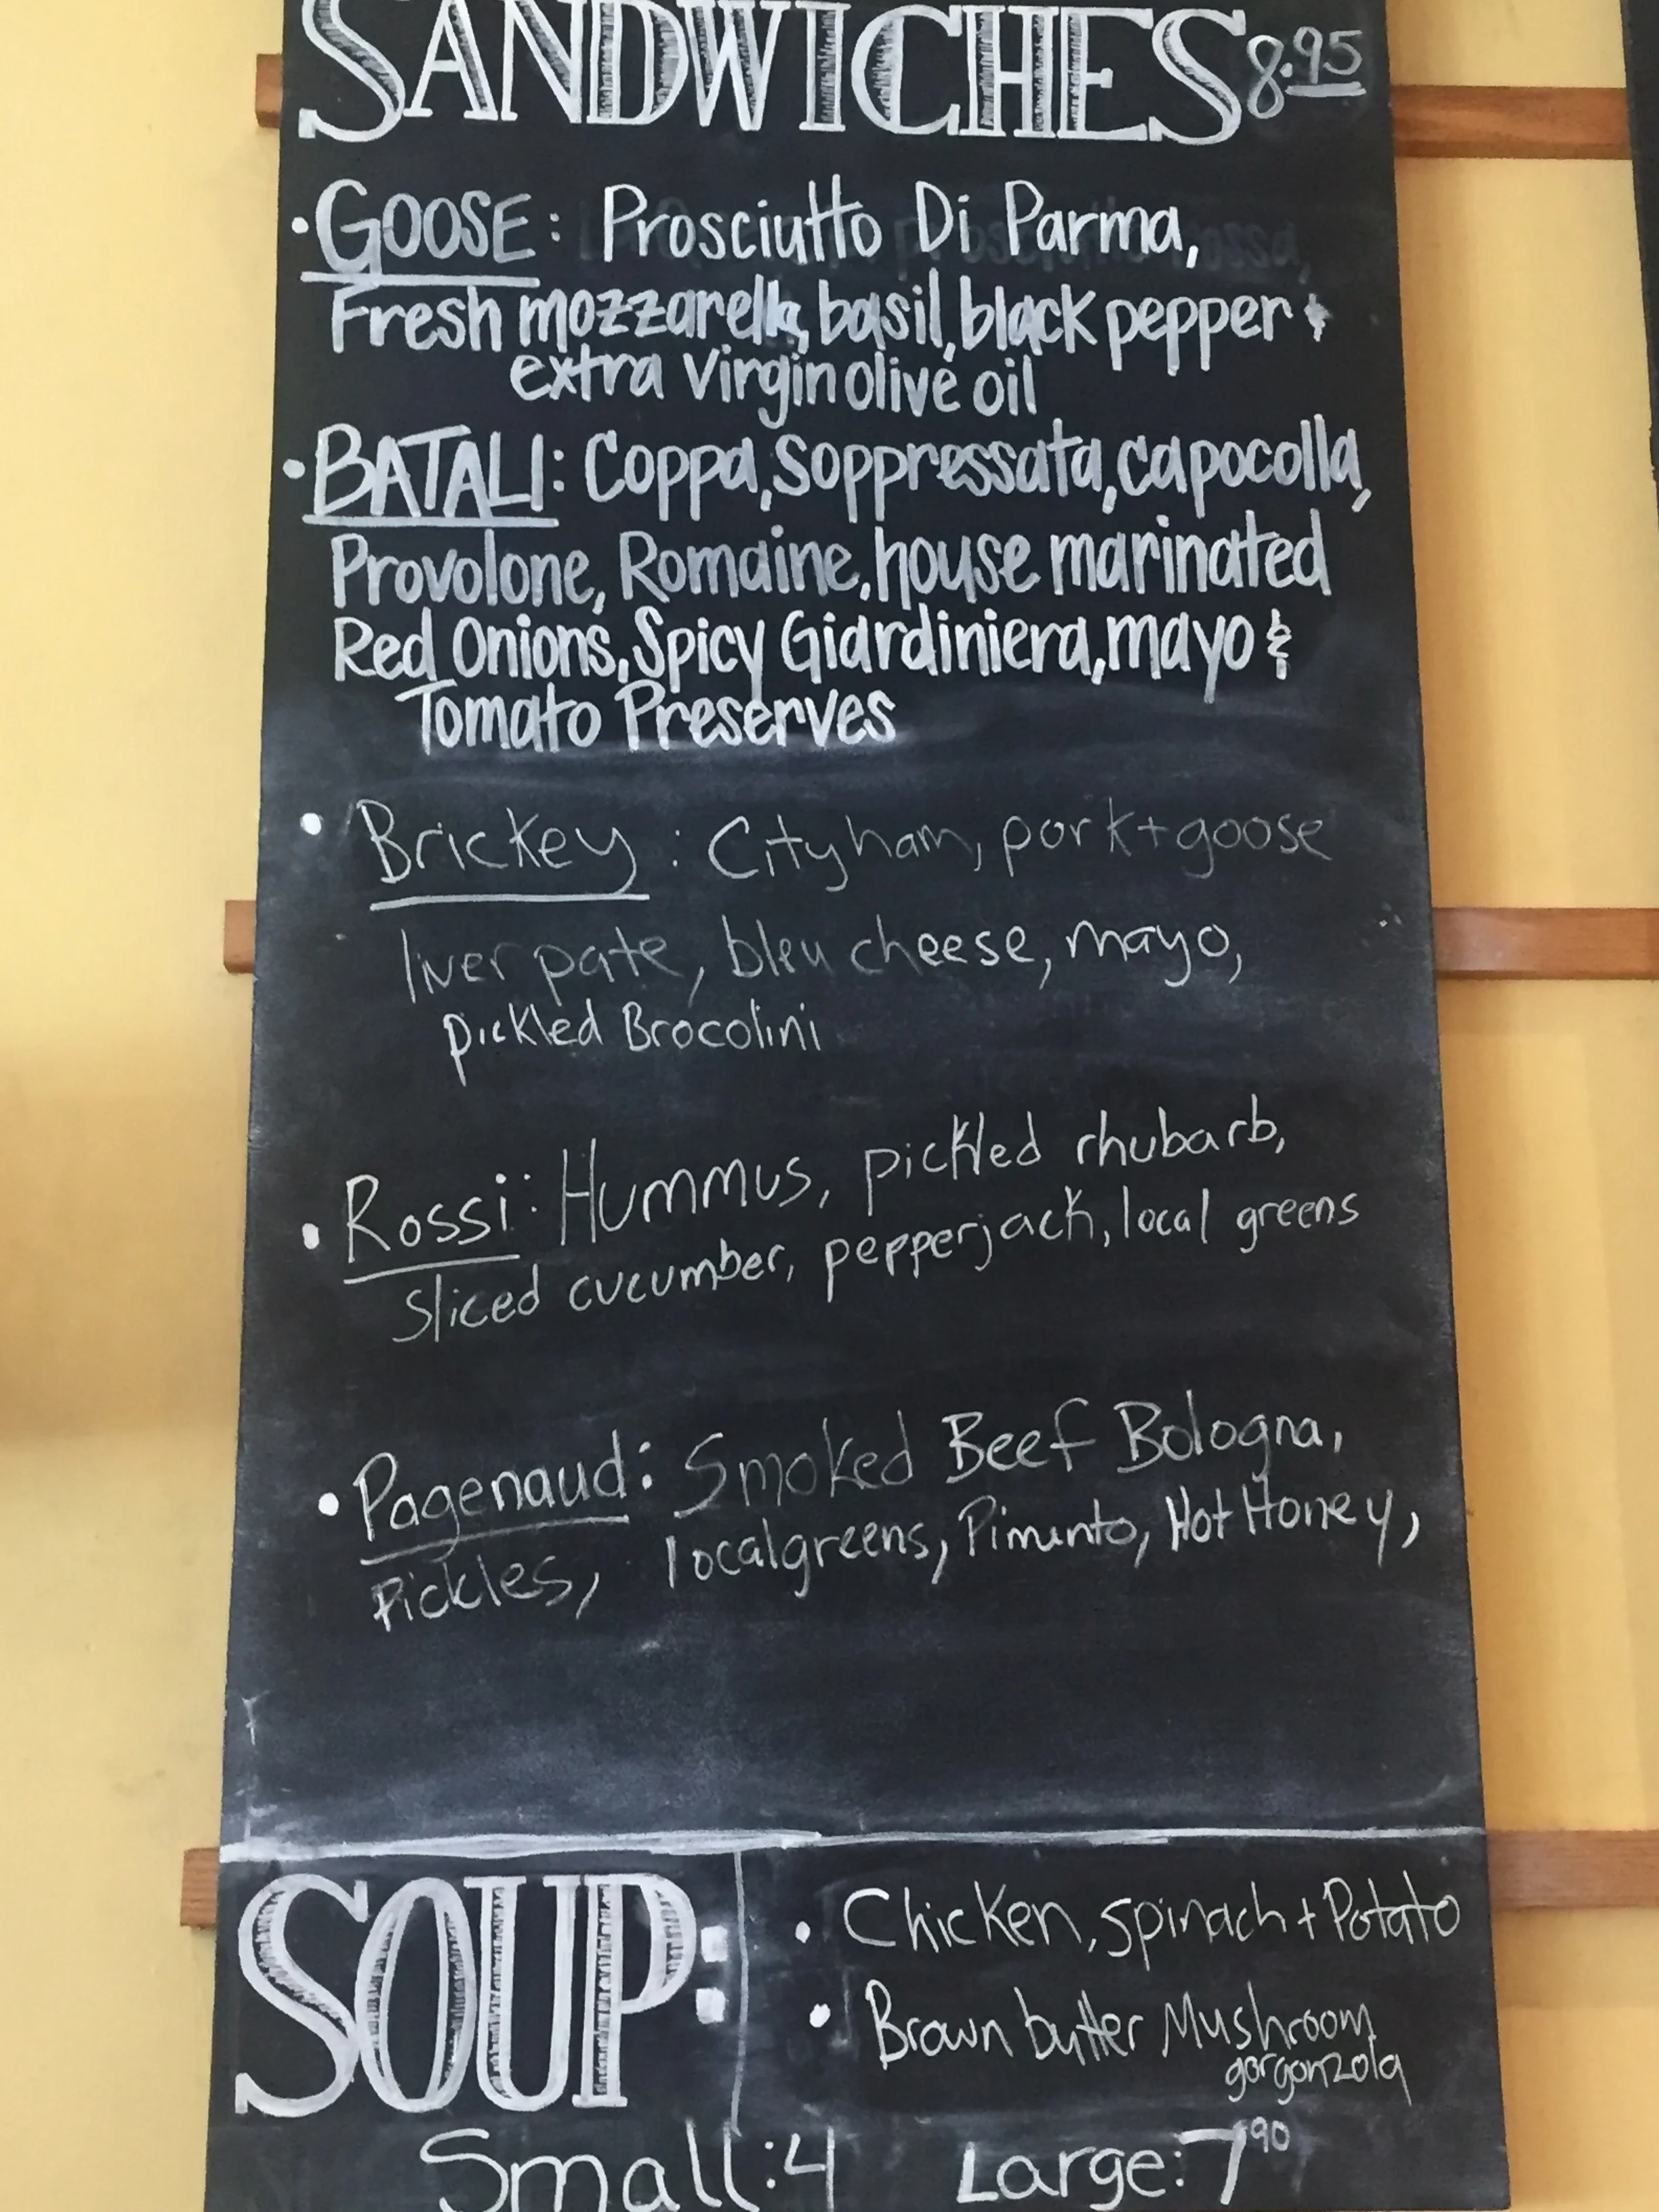 SANDWICHES 8.95
• GOOSE: Prosciutto Di Parma,
Fresh mozzarella, basil, black pepper &
extra virgin olive oil
• BATALI: Coppa, Soppressata, capocolla,
Provolone, Romaine, house marinated
Red Onions, Spicy Giardiniera, mayo &
Tomato Preserves
• Brickey: City ham, pork + goose
liver pate, bleu cheese, mayo,
pickled Brocolini
• Rossi: Hummus, pickled rhubarb,
Sliced cucumber, pepperjack, local greens
• Pagenaud: Smoked Beef Bologna,
Pickles, local greens, Pimento, Hot Honey,
SOUP:
• Chicken, spinach + Potato
• Brown butter Mushroom
gorgonzola
Small: 4 Large: 7.90